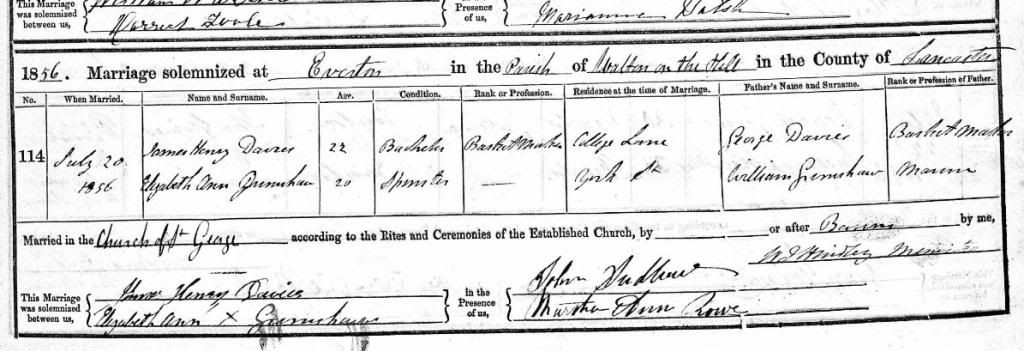 This Marriage
was solemnized
between us,
Harriet Poole
in the
Presence
of us,
Marianne
1856. Marriage solemnized at Everton in the Parish of Walton on the Hill in the County of Lancaster
No. When Married. Name and Surname. Age. Condition. Rank or Profession. Residence at the time of Marriage. Father's Name and Surname. Rank or Profession of Father.
114 July 20 James Henry Davies 22 Bachelor Basket Maker College Lane George Davies Basket Maker
1856 Elizabeth Ann Grimshaw 20 Spinster — York St William Grimshaw Marine
Married in the Church of St George according to the Rites and Ceremonies of the Established Church, by or after Banns by me,
Minister
This Marriage
was solemnized
between us,
James Henry Davies
Elizabeth Ann X Grimshaw
in the
Presence
of us,
John
Martha Ann Rowe